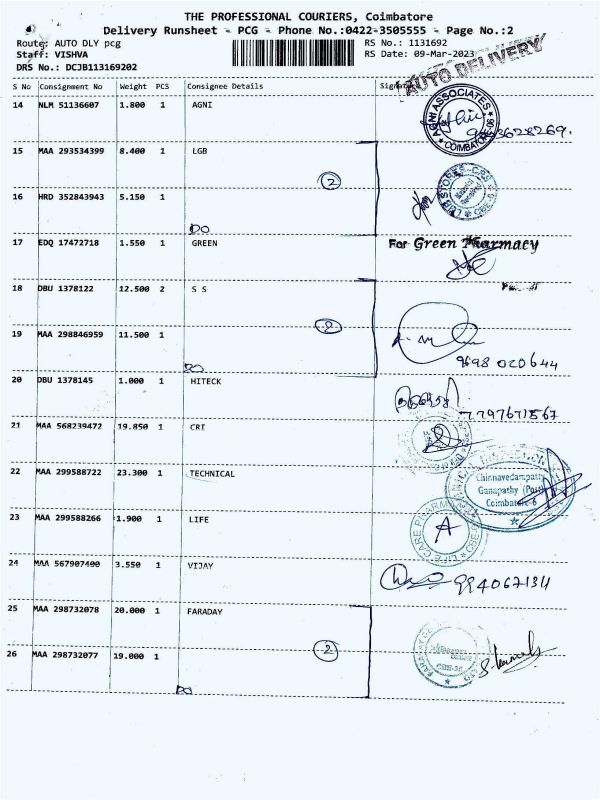 THE PROFESSIONAL COURIERS, Coimbatore
Delivery Runsheet - PCG - Phone No.:0422-3505555 - Page No.:2
Route: AUTO DLY pcg
RS No.: 1131692
Staff: VISHVA
RS Date: 09-Mar-2023
DRS No.: DCJB113169202
AUTO DELIVERY
S No Consignment No Weight PCS Consignee Details
14 NLM 51136607 1.800 1 AGNI
AGNI ASSOCIATES
COIMBATORE
15 MAA 293534399 8.400 1 LGB
2
16 HRD 352843943 5.150 1
DO
17 EDQ 17472718 1.550 1 GREEN
For Green Pharmacy
18 DBU 1378122 12.500 2 S S
2
19 MAA 298846959 11.500 1
DO
9698 020644
20 DBU 1378145 1.000 1 HITECK
7797671567
21 MAA 568239472 19.850 1 CRI
22 MAA 299588722 23.300 1 TECHNICAL
Chinnavedampatti
Ganapathy (Post)
Coimbatore-6
23 MAA 299588266 1.900 1 LIFE
LIFE CARE PHARMA
24 MAA 567907400 3.550 1 VIJAY
994067134
25 MAA 298732078 20.000 1 FARADAY
2
26 MAA 298732077 19.000 1
DO